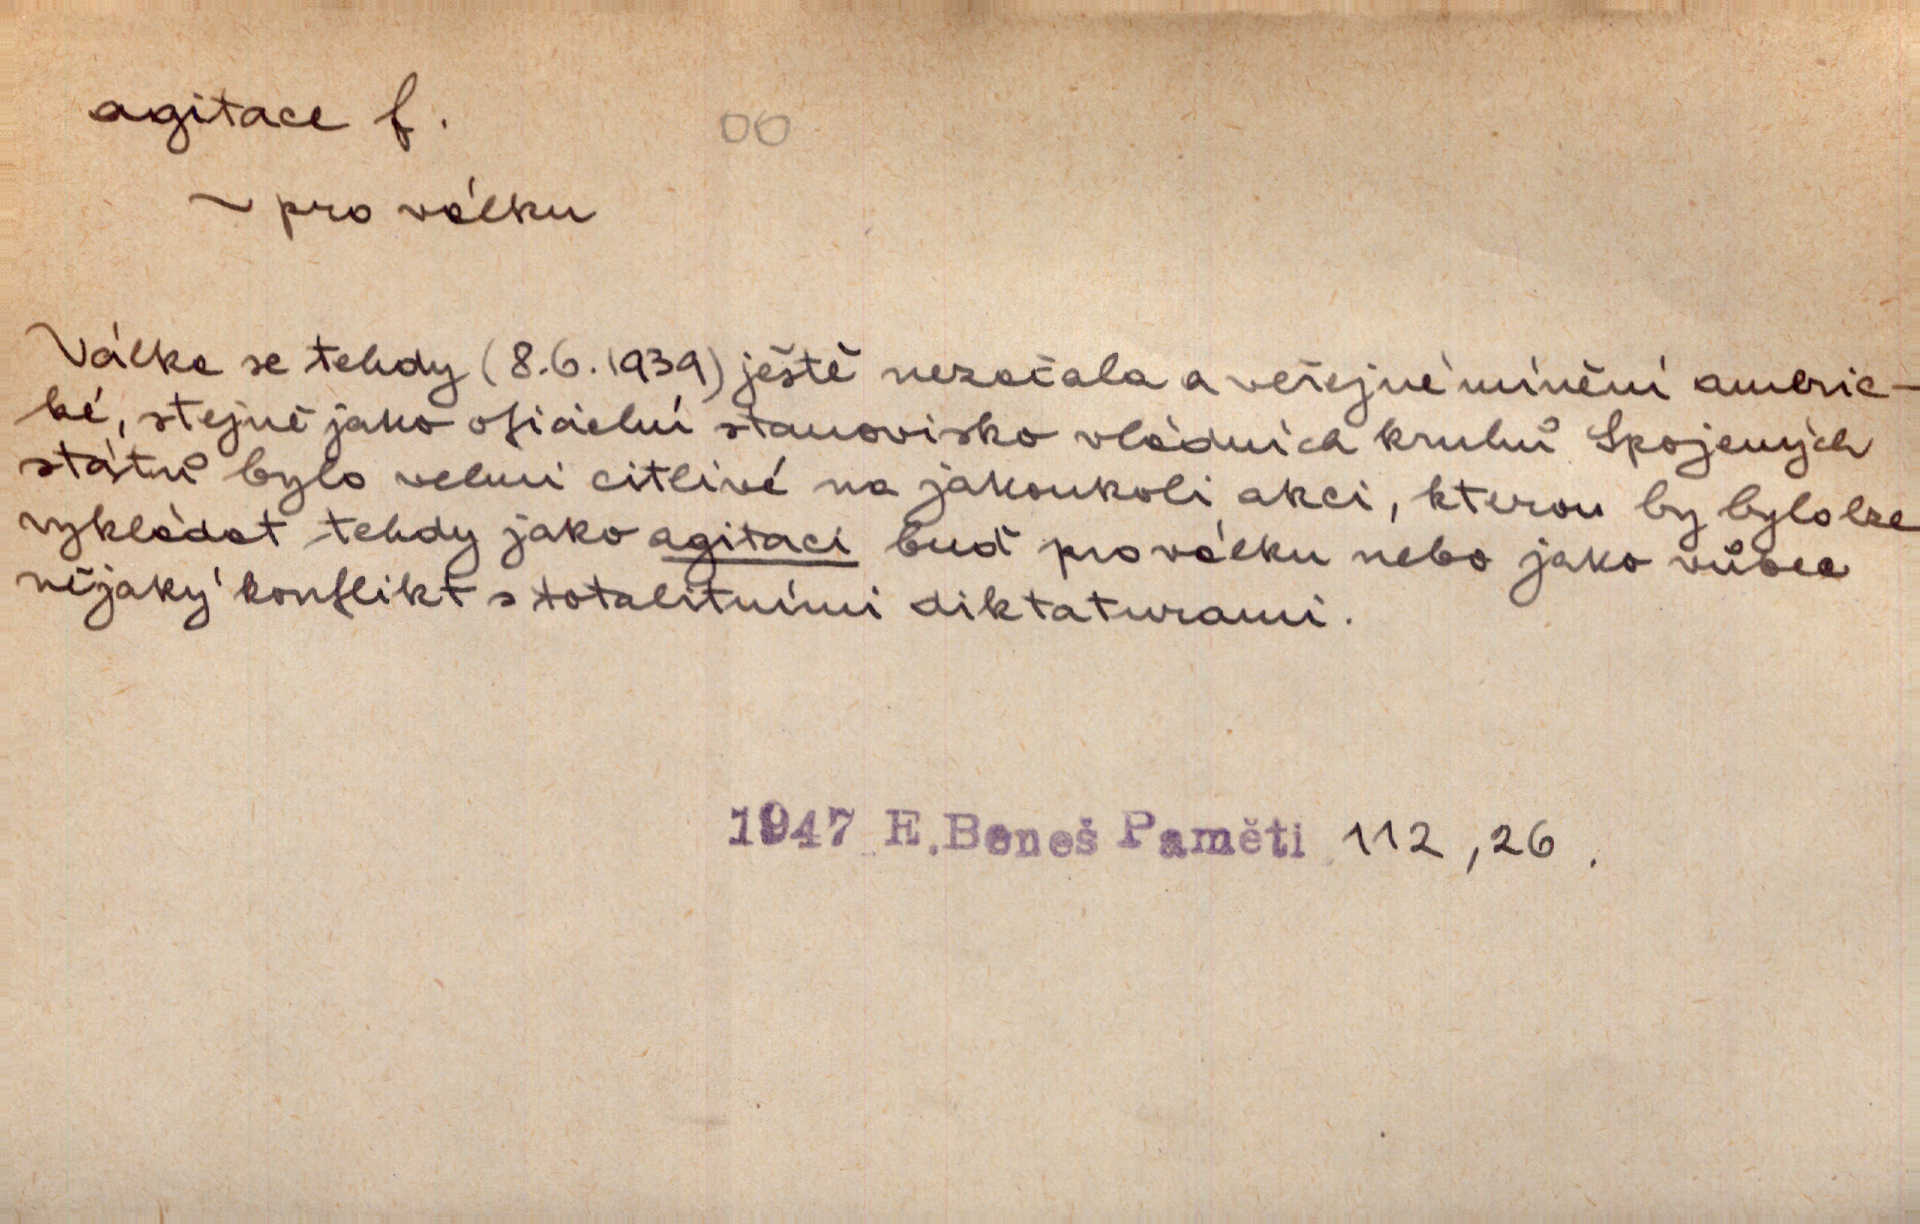 agitace f.
00
~ pro válku
Válka se tehdy (8.6.1939) ještě nezačala a veřejné mínění americ-
ké, stejně jako oficielní stanovisko vládních kruhů Spojených
států bylo velmi citlivé na jakoukoli akci, kterou by bylo lze
vykládat tehdy jako agitaci buď pro válku nebo jako vůbec
nějaký konflikt s totalitními diktaturami.
1947 E.Beneš Paměti 112,26.